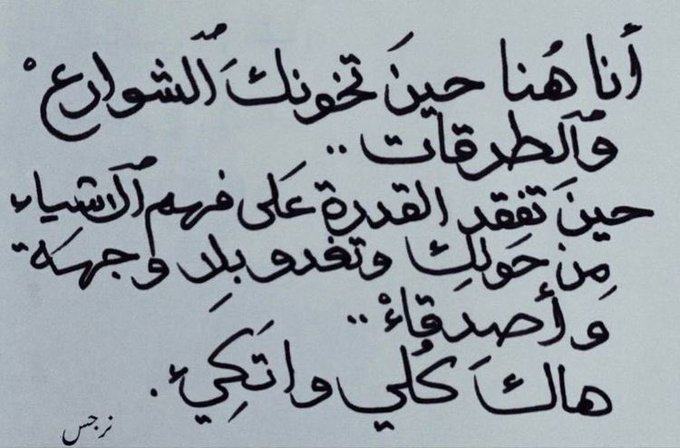 أنا هُنا حينَ تخونكَ الشوارعْ
والطرقات ..
حينَ تفقد القدرة عَلى فهم الاشياء
مِن حَولِك وتغدو بِلا وجهَة
وَأصدقاءْ ..
هاكَ كُلي واتَكِيء .
نرجس